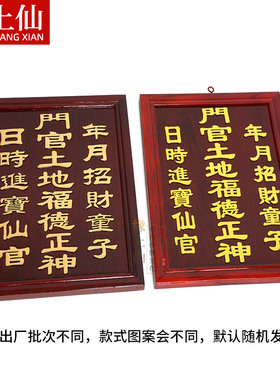 上仙
ANG XIAN
年月招財童子
門官土地福德正神
日時進寶仙官
年月招財童子
門官土地福德正神
日時進寶仙官
出厂批次不同，款式图案会不同，默认随机发